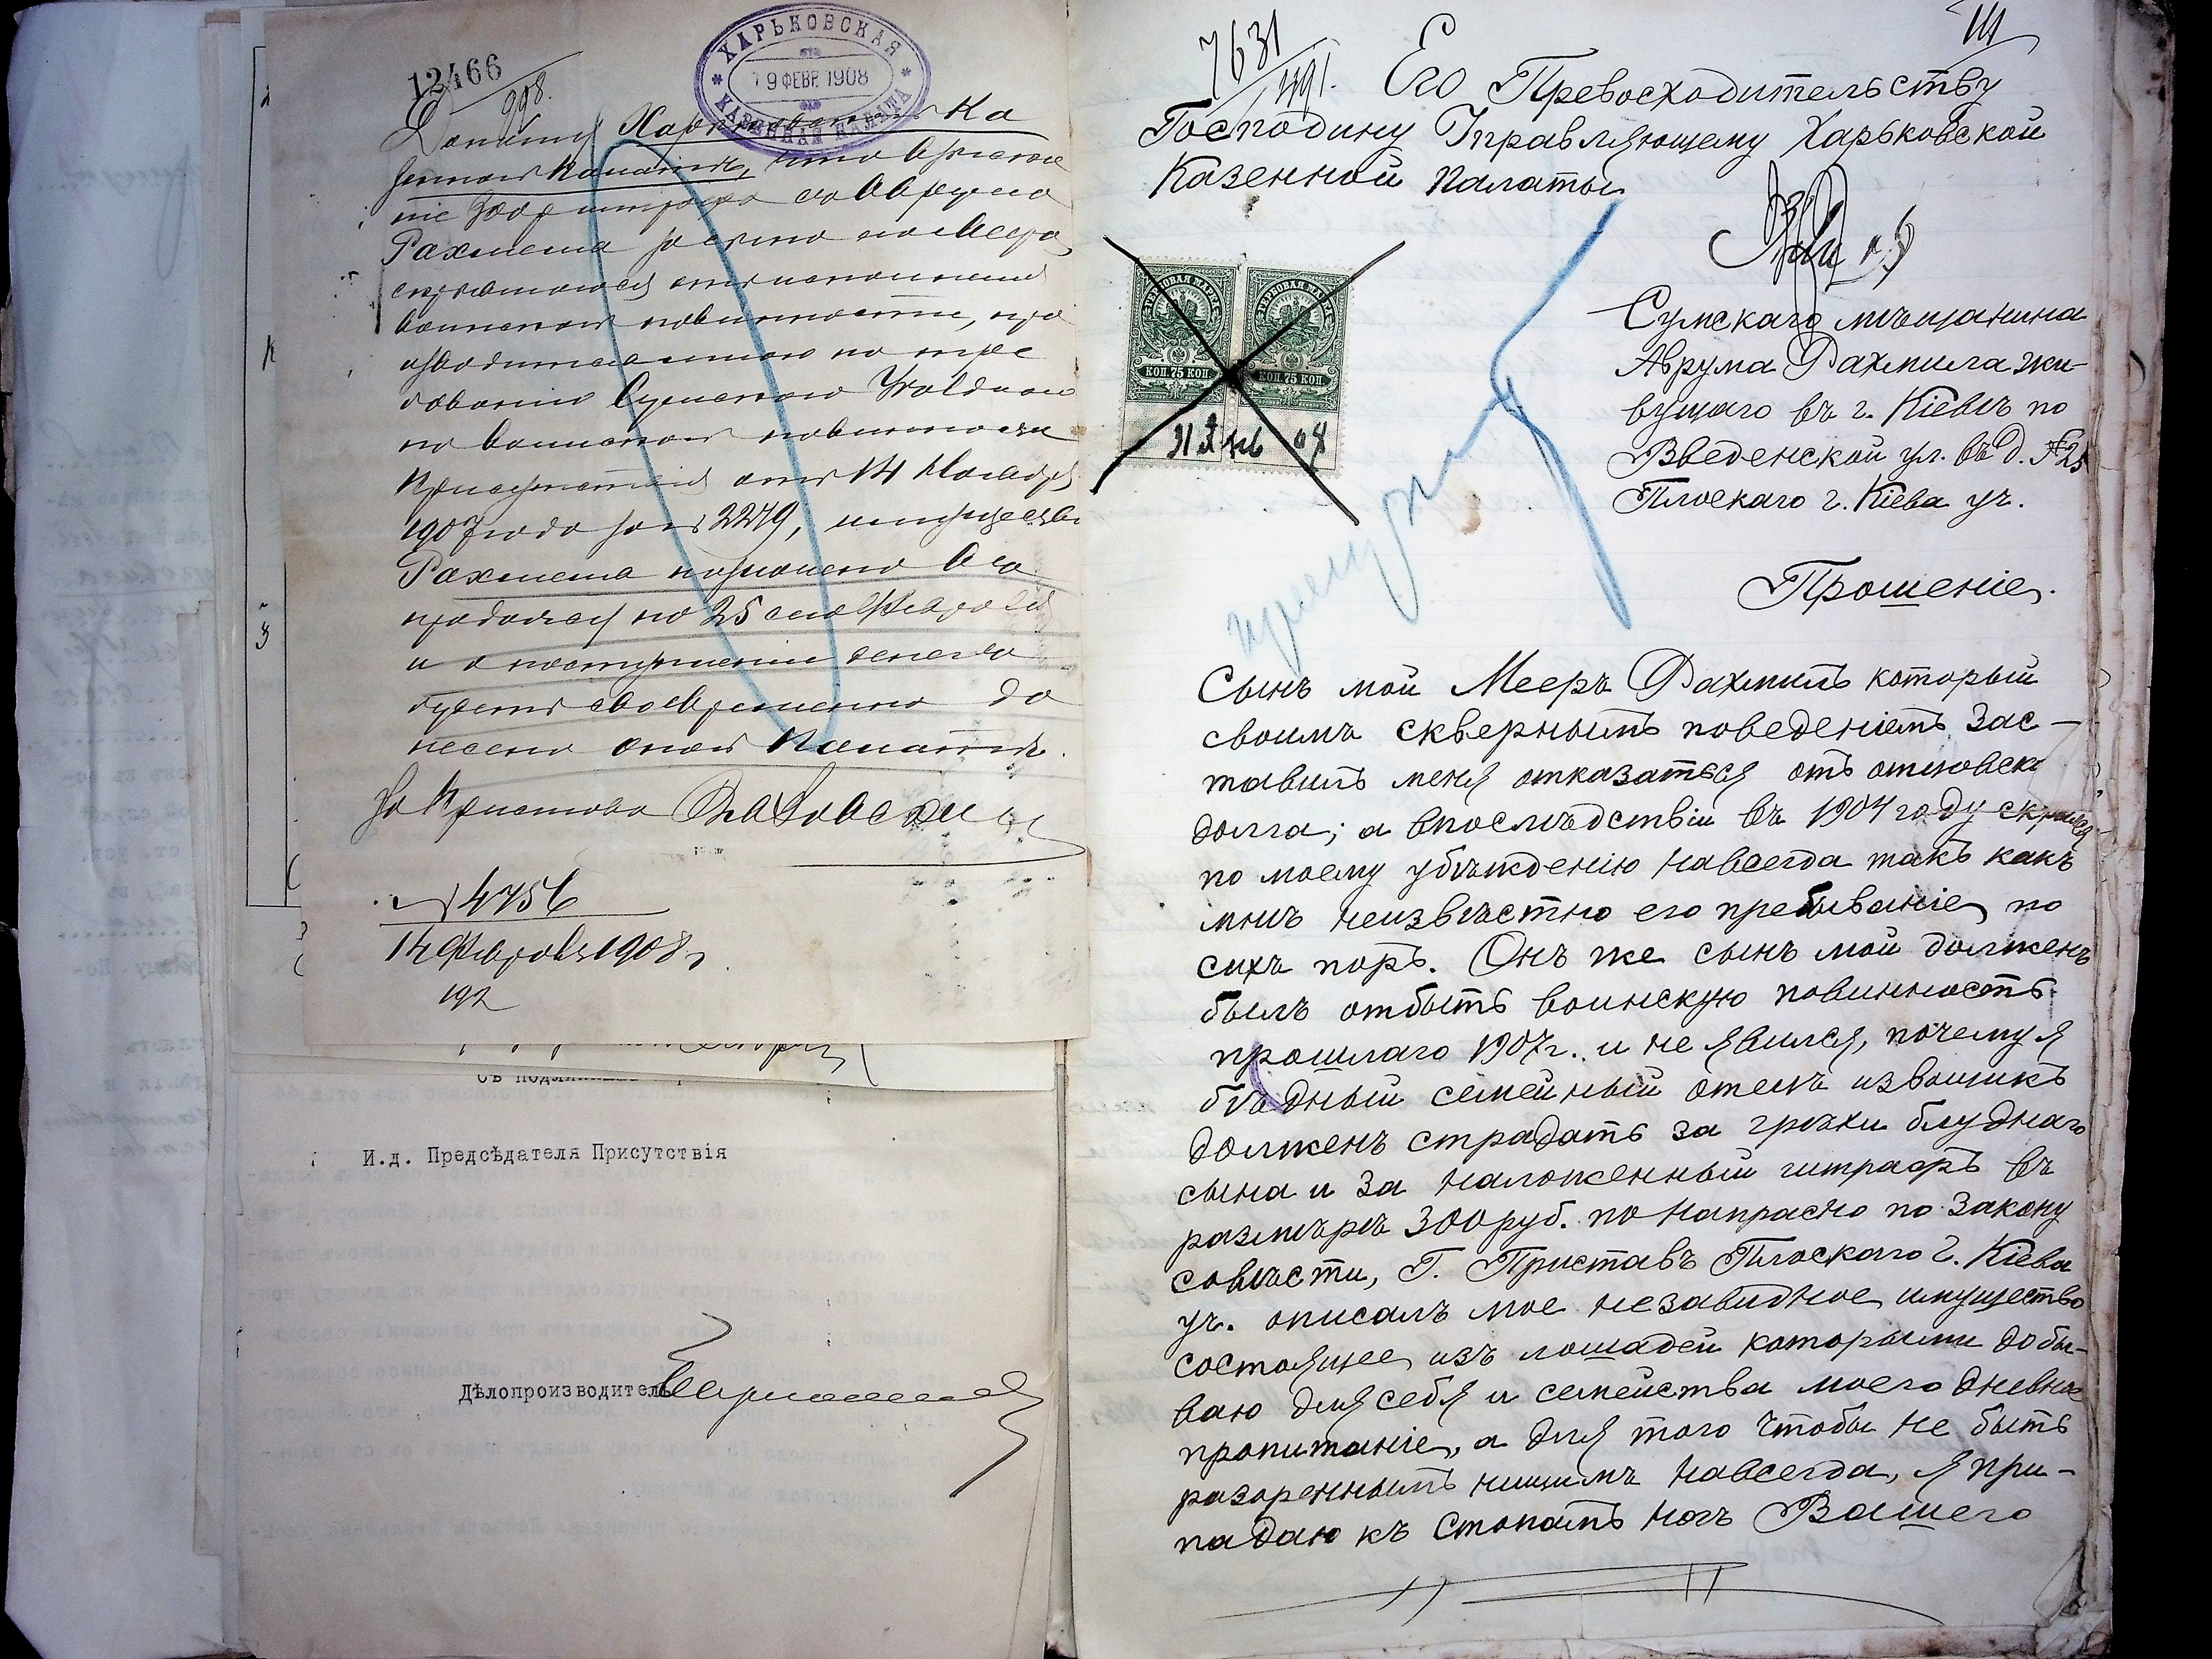 12466
998.
ХАРЬКОВСКАЯ
19 ФЕВР. 1908
КАЗЕННАЯ ПАЛАТА
Доношу Харьковской Ка
зенной Палатѣ, что взыска
ніе 300 р штрафа съ Аврума
Рахмила за сына его Меера
скрывшагося отъ исполненія
воинской повинности, про
изводится мною по тре
бованію Сумского Уѣзднаго
по воинской повинности
Присутствія отъ 14 Ноября
1907 года за № 2279, имущество
Рахмила назначено въ
продажу на 25 сего Февраля
и о поступленіи денегъ
будетъ своевременно до
несено оной Палатѣ.
За Пристава
№ 4756
14 Февраля 1908 г.
192
И.д. Предсѣдателя Присутствія
Дѣлопроизводитель
7631
1191.
Его Превосходительству
Господину Управляющему Харьковской
Казенной Палаты
ГЕРБОВАЯ МАРКА ГЕРБОВАЯ МАРКА
КОП. 75 КОП. КОП. 75 КОП.
08
Сумскаго мѣщанина
Аврума Рахмила жи-
вущаго въ г. Кіевѣ по
Введенской ул. въ д. № 25
Плоскаго г. Кіева уч.
Прошеніе.
Сынъ мой Мееръ Рахмилъ который
своимъ сквернымъ поведеніемъ, зас-
тавилъ меня отказаться отъ отцовск
долга; а впослѣдствіи въ 1904 году скрылся
по моему убѣжденію навсегда такъ какъ
мнѣ неизвѣстно его пребываніе по
сихъ поръ. Онъ же сынъ мой долженъ
былъ отбыть воинскую повинность
прошлаго 1907 г. и не явился, почему я
бѣдный семейный отецъ извощикъ
долженъ страдать за грѣхи блуднаго
сына и за наложенный штрафъ въ
размѣрѣ 300 руб. по напрасно по закону
совѣсти, Г. Приставъ Плоскаго г. Кіева
уч. описалъ мое незавидное имущество
состоящее изъ лошадей которыми добы-
ваю для себя и семейства моего дневное
пропитаніе, а для того чтобы не быть
разореннымъ нищимъ навсегда, я при-
падаю къ стопамъ ногъ Вашего